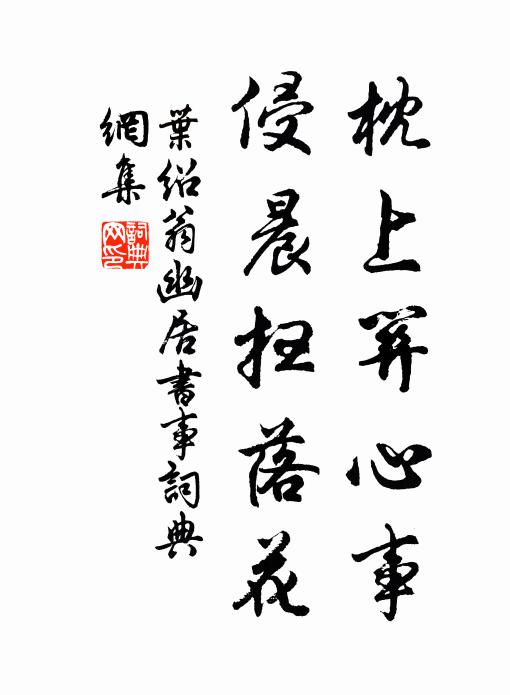 枕上筭心事
侵晨扫落花
葉紹翁幽居書事詞典
網集
詞典
网印